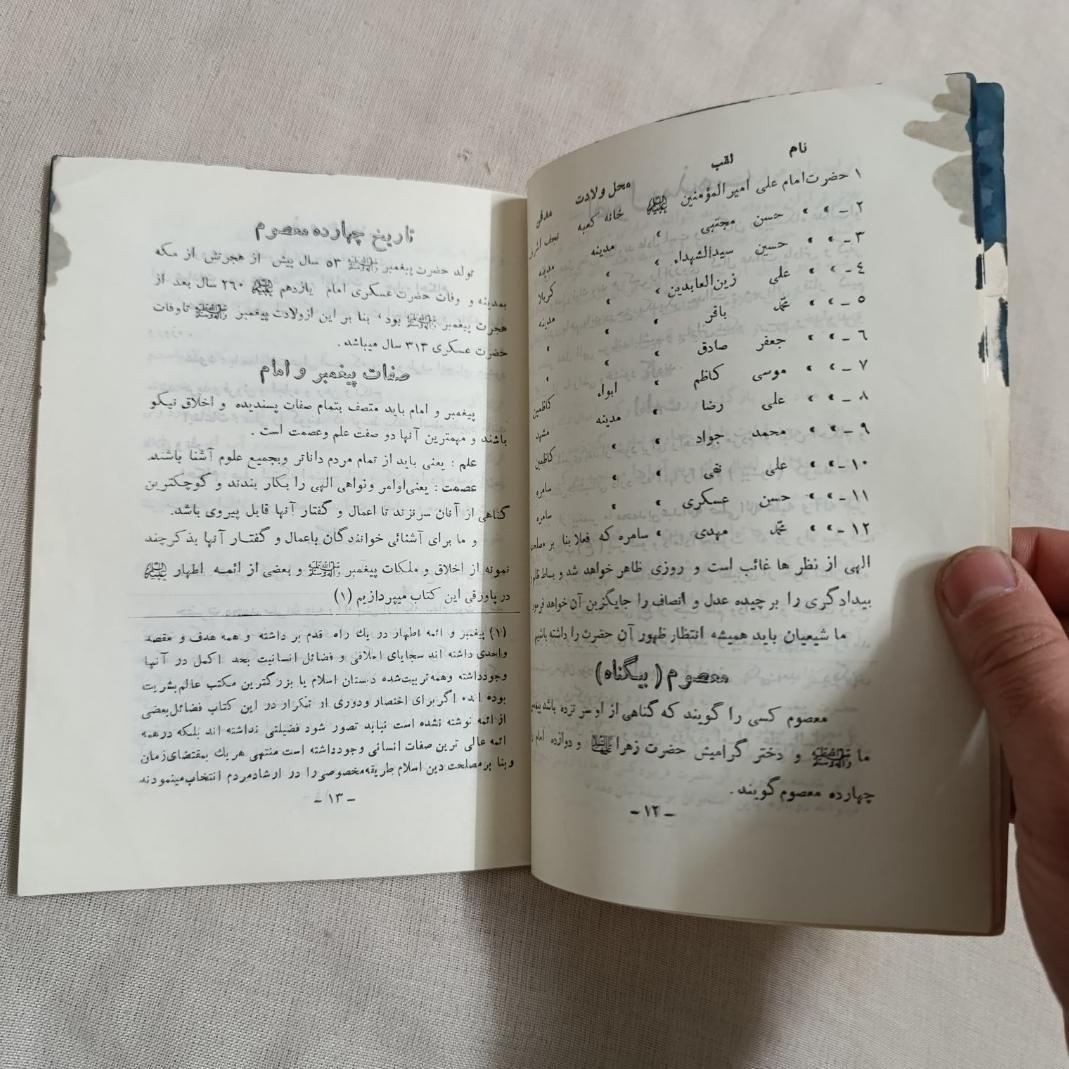 نام لقب محل ولادت مدفن
۱ حضرت‌امام علی امیرالمؤمنین علیه‌السلام خانه کعبه نجف اشرف
۲ـ » » حسن مجتبی » مدینه مدینه
۳ـ » » حسین سیدالشهداء » » کربلا
۴ـ » » علی زین‌العابدین » » مدینه
۵ـ » » محمّد باقر » » »
۶ـ » » جعفر صادق » » »
۷ـ » » موسی کاظم » ابواء کاظمین
۸ـ » » علی رضا » مدینه مشهد
۹ـ » » محمد جواد » » کاظمین
۱۰ـ » » علی نقی » » سامره
۱۱ـ » » حسن عسکری » » سامره
۱۲ـ » » محمّد مهدی » سامره که فعلا بنا بر مصلحت
الهی از نظر ها غائب است و روزی ظاهر خواهد شد و بساط
بیدادگری را بر چیده عدل و انصاف را جایگزین آن خواهد
ما شیعیان باید همیشه انتظار ظهور آن حضرت را داشته باشیم
معصوم (بیگناه)
معصوم کسی را گویند که گناهی از او سر نزده باشد
ما صلی‌الله‌علیه‌وآله و دختر گرامیش حضرت زهرا علیهاالسلام و دوازده امام را
چهارده معصوم گویند.
ـ ۱۲ ـ
تاریخ چهارده معصوم
تولد حضرت پیغمبر صلی‌الله‌علیه‌وآله ۵۳ سال پیش از هجرتش از مکه
بمدینه و وفات حضرت عسکری امام یازدهم علیه‌السلام ۲۶۰ سال بعد از
هجرت پیغمبر صلی‌الله‌علیه‌وآله بود، بنا بر این ازولادت پیغمبر صلی‌الله‌علیه‌وآله تاوفات
حضرت عسکری ۳۱۳ سال میباشد.
صفات پیغمبر و امام
پیغمبر و امام باید متصف بتمام صفات پسندیده و اخلاق نیکو
باشند و مهمترین آنها دو صفت علم وعصمت است.
علم : یعنی باید از تمام مردم داناتر وبجمیع علوم آشنا باشند.
عصمت : یعنی‌اوامر ونواهی الهی را بکار بندند و کوچکترین
گناهی از آنان سرنزند تا اعمال و گفتار آنها قابل پیروی باشد.
و ما برای آشنائی خوانندگان باعمال و گفتـار آنها بذکرچند
نمونه از اخلاق و ملکات پیغمبر صلی‌الله‌علیه‌وآله و بعضی از ائمـه اطهار علیهم‌السلام
در پاورقی این کتاب میپردازیم (۱)
(۱) پیغمبر و ائمه اطهار در یك راه قدم بر داشته و همه هدف و مقصد
واحدی داشته اند سجایای اخلاقی و فضائل انسانیت بحد اکمل در آنها
وجودداشته وهمه تربیت‌شده دبستان اسلام یا بزرگترین مکتب عالم‌بشریت
بوده اند اگر برای اختصار ودوری از تکرار در این کتاب فضائل‌بعضی
از ائمه نوشته نشده است نباید تصور شود فضیلتی نداشته اند بلکه درهمه
ائمه عالی ترین صفات انسانی وجودداشته است منتهی هر یك بمقتضای‌زمان
وبنا بر مصلحت دین اسلام طریقه مخصوصی را در ارشادمردم انتخاب‌مینمودند
ـ ۱۳ ـ